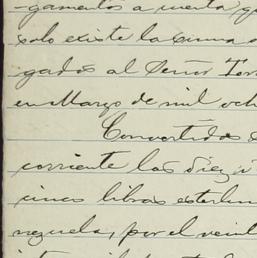 -gamentos a cuenta qu
solo existe la suma
gados al Señor Tor
en Marzo de mil och
Convertidos
corriente las diez i
cinco libras esterlin
nezuela, por el veint